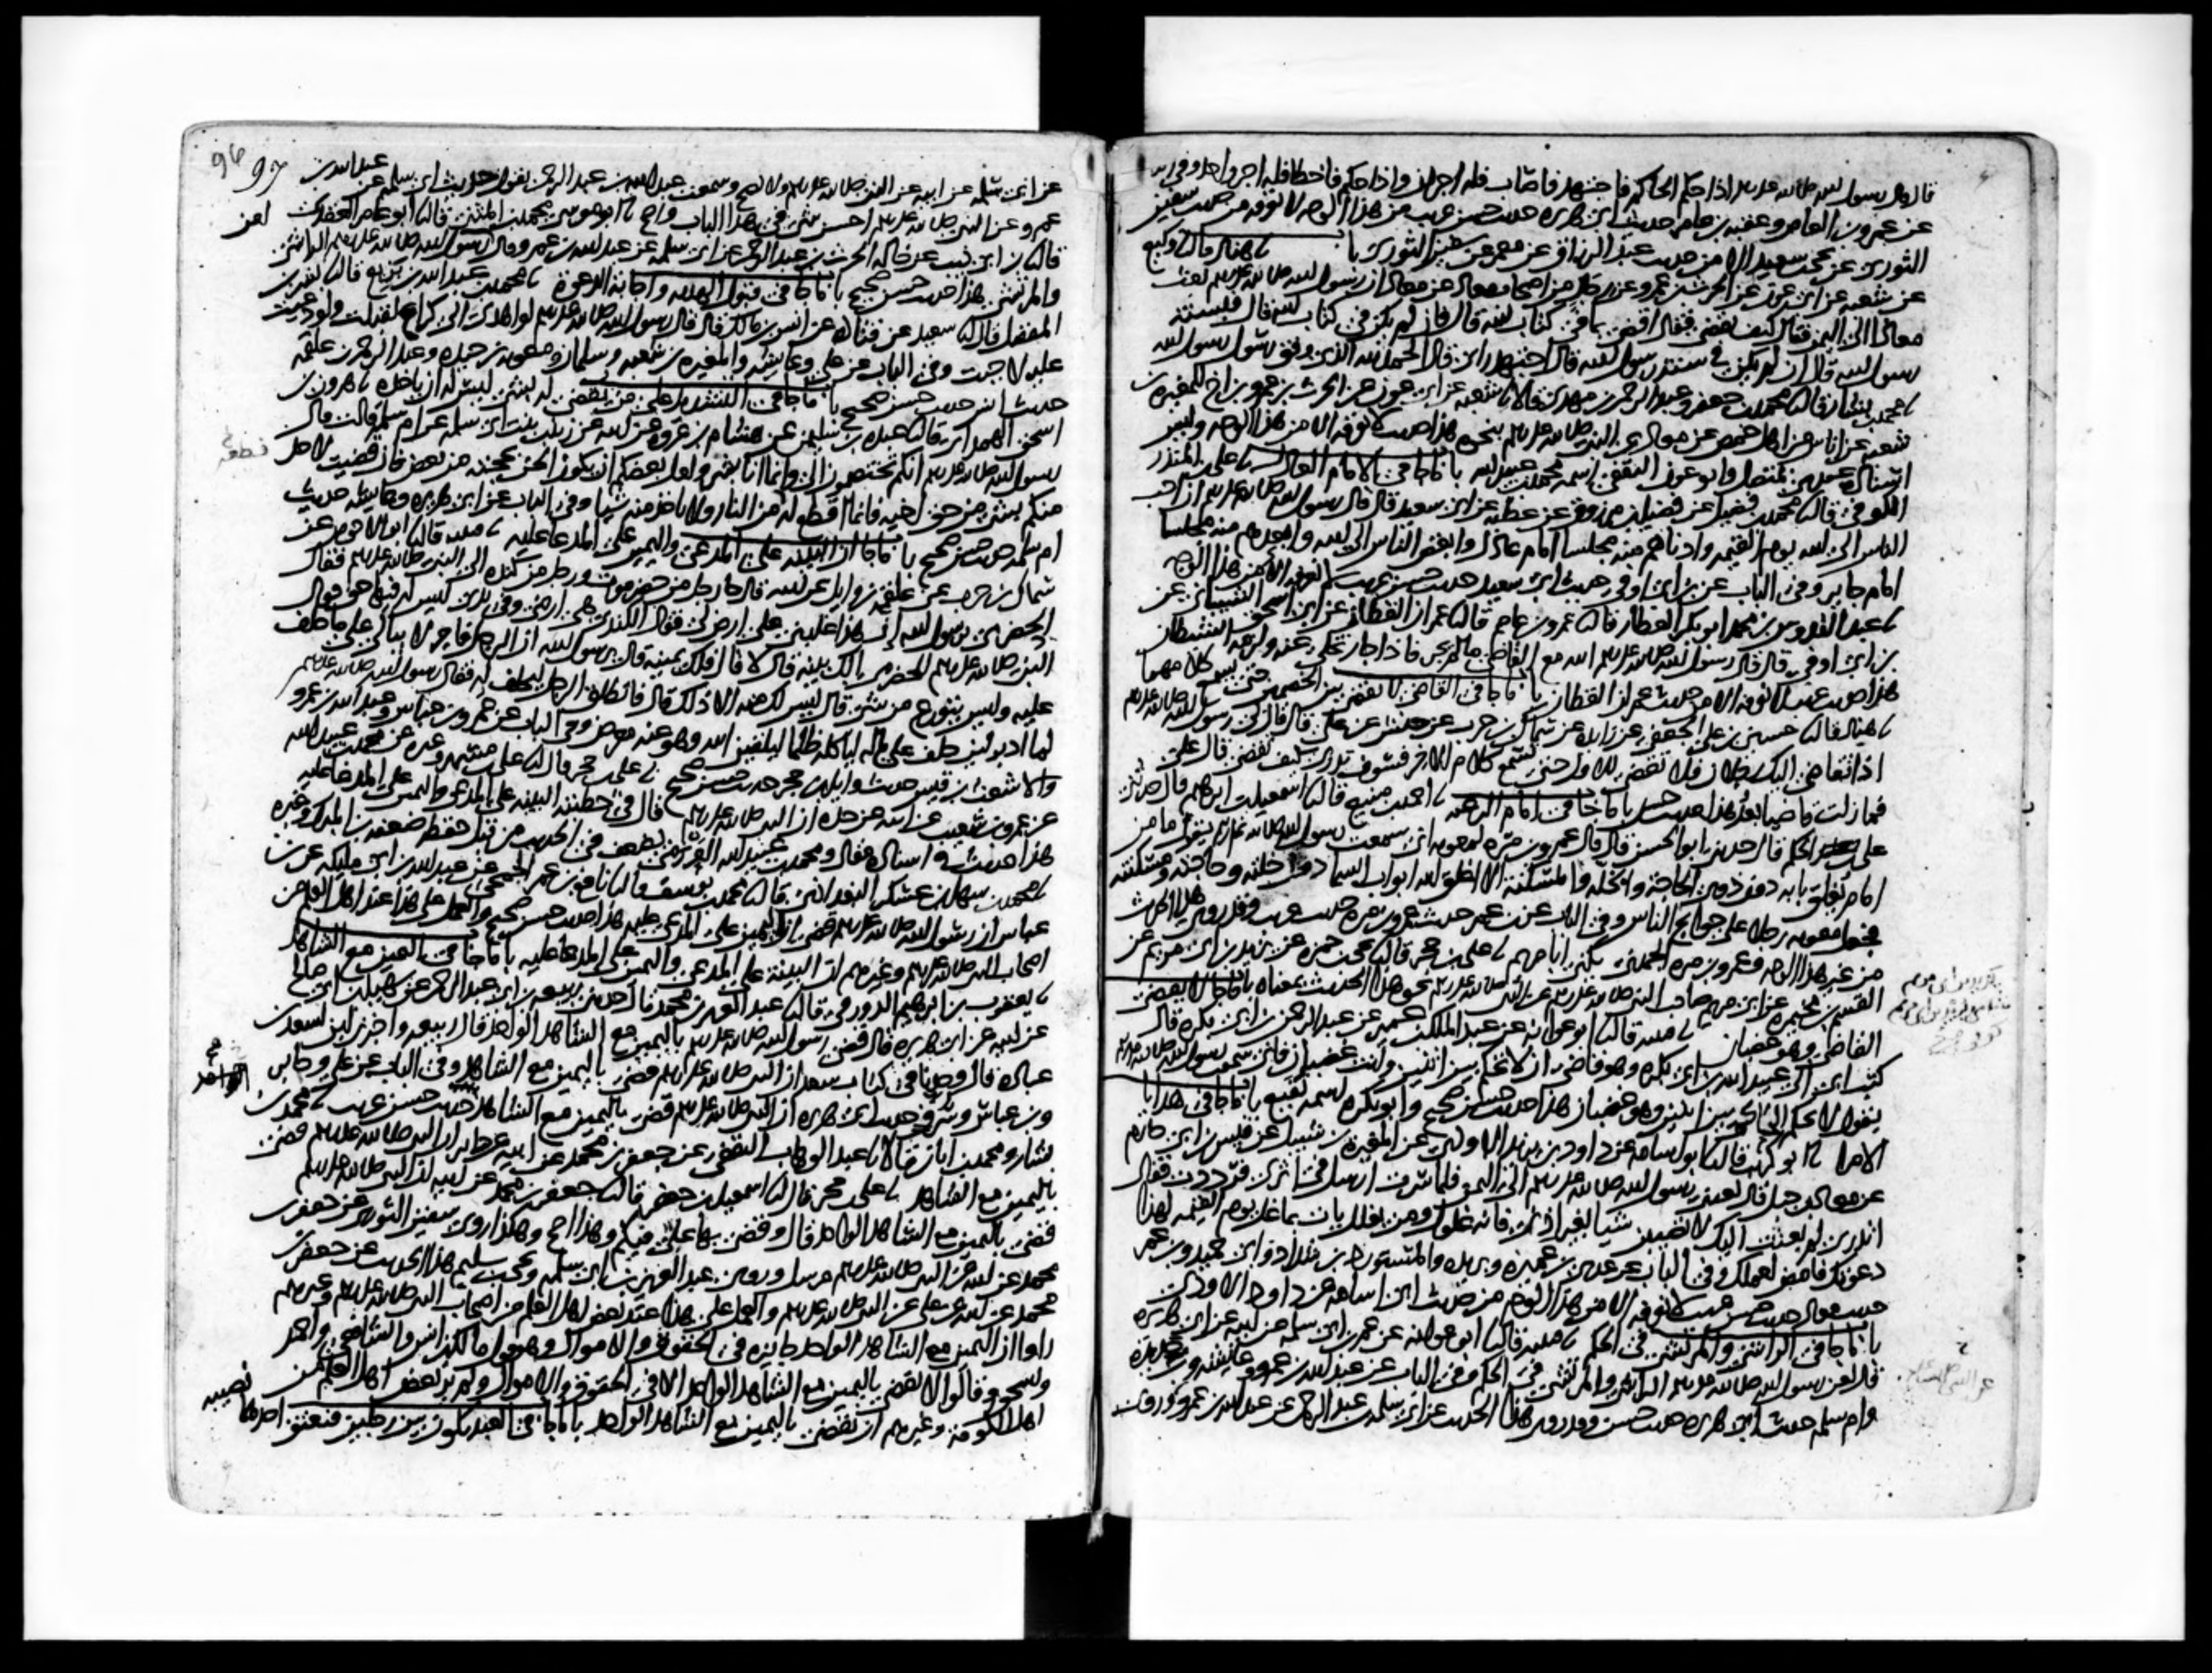 قال قال رسول الله صلى الله عليه وسلم اذا حكم الحاكم فاجتهد فاصاب فله اجران واذا حكم فاخطا فله اجر واحد وفي
عن عمرو بن العاص وعقبة بن عامر حديث ابي هريرة حديث حسن غريب من هذا الوجه لا نعرفه من حديث سفين
الثوري عن يحيى بن سعيد الا من حديث عبد الرزاق عن معمر عن سفين الثوري با هناد قال وكيع
عن شعبة عن ابي عون عن الحرث بن عمرو عن رجال من اصحاب معاذ عن معاذ ان رسول الله صلى الله عليه وسلم بعث
معاذا الى اليمن فقال كيف تقضي فقال اقضي بما في كتاب الله قال فان لم يكن في كتاب الله قال فبسنة
رسول الله قال ان لم يكن في سنة رسول الله قال اجتهد رايي قال الحمد لله الذي وفق رسول رسول الله
محمد بن بشار قال محمد بن جعفر وعبد الرحمن بن مهدي قالا نا شعبة عن ابي عون عن الحرث بن عمرو بن اخ للمغيرة بن
شعبة عن اناس من اهل حمص عن معاذ عن النبي صلى الله عليه وسلم بنحوه هذا حديث لا نعرفه الا من هذا الوجه وليس
اسناده عندي بمتصل وابو عون الثقفي اسمه محمد بن عبيد الله با ما جا في الامام العادل على بن المنذر
الكوفي قال محمد بن فضيل عن فضيل بن مرزوق عن عطية عن ابي سعيد قال قال رسول الله صلى الله عليه وسلم ان احب
الناس الى الله يوم القيمة وادناهم منه مجلسا امام عادل وابغض الناس الى الله وابعدهم منه مجلسا
امام جاير وفي الباب عن ابن ابي اوفى حديث ابي سعيد حديث حسن غريب لا نعرفه الا من هذا الوجه
عبد القدوس بن محمد ابو بكر العطار قال عمرو بن عاصم قال عمران القطان عن ابي اسحق الشيباني عن
بن ابي اوفى قال قال رسول الله صلى الله عليه وسلم الله مع القاضي ما لم يجر فاذا جار تخلى عنه ولزمه الشيطان
هذا حديث غريب لا نعرفه الا من حديث عمران القطان با ما جا في القاضي لا يقضي بين الخصمين حتى يسمع كلامهما
هناد قال حسين بن علي الجعفي عن زايدة عن سماك بن حرب عن حنش عن علي قال قال لي رسول الله صلى الله عليه وسلم
اذا تقاضى اليك رجلان فلا تقضي للاول حتى تسمع كلام الاخر فسوف تدري كيف تقضي قال علي
فما زلت قاضيا بعد هذا حديث حسن با ما جا في امام الرعية احمد بن منيع قال اسمعيل بن ابرهيم قال حدثني
علي بن الحكم قال حدثني ابو الحسن قال قال عمرو بن مرة لمعوية اني سمعت رسول الله صلى الله عليه وسلم يقول ما من
امام يغلق بابه دون ذوي الحاجة والخلة والمسكنة الا اغلق الله ابواب السما دون خلته وحاجته ومسكنته
فجعل معوية رجلا على حوايج الناس وفي الباب عن بن عمر حديث عمرو بن مرة حديث غريب وقد روي هذا الحديث
من غير هذا الوجه وعمرو بن مرة الجهني يكنى ابا مريم علي بن حجر قال يحيى بن حمزة عن يزيد بن ابي مريم عن
القسم بن مخيمرة عن ابي مريم صاحب النبي صلى الله عليه وسلم عن النبي صلى الله عليه وسلم نحو هذا الحديث بمعناه با ما جا لا يقضي
القاضي وهو غضبان قتيبة قال ابو عوانة عن عبد الملك بن عمير عن عبد الرحمن بن ابي بكرة قال
كتب ابي الى عبيد الله بن ابي بكرة وهو قاضي ان لا تحكم بين اثنين وانت غضبان فاني سمعت رسول الله صلى الله عليه وسلم
يقول لا يحكم الحاكم بين اثنين وهو غضبان هذا حديث حسن صحيح وابو بكرة اسمه نفيع با ما جا في هدايا
الامرا ابو كريب قال ابو اسامة عن داود بن يزيد الاودي عن المغيرة بن شبيل عن قيس بن ابي حازم
عن معاذ بن جبل قال بعثني رسول الله صلى الله عليه وسلم الى اليمن فلما سرت ارسل في اثري فرددت فقال
اتدري لم بعثت اليك لا تصيبن شيا بغير اذني فانه غلول ومن يغلل يات بما غل يوم القيمة لهذا
دعوتك فامض لعملك وفي الباب عن عدي بن عميرة وبريدة والمستورد بن شداد وابي حميد وبن عمر
حديث معاذ حديث حسن غريب لا نعرفه الا من هذا الوجه من حديث ابي اسامة عن داود الاودي
با ما جا في الراشي والمرتشي في الحكم قتيبة قال ابو عوانة عن عمر بن ابي سلمة عن ابيه عن ابي هريرة
قال لعن رسول الله صلى الله عليه وسلم الراشي والمرتشي في الحكم وفي الباب عن عبد الله بن عمرو وعايشة وبن حديدة
وام سلمة حديث ابي هريرة حديث حسن وقد روي هذا الحديث عن ابي سلمة بن عبد الرحمن عن عبد الله بن عمرو وروي
96 97
عن ابي سلمة عن ابيه عن النبي صلى الله عليه وسلم ولا يصح وسمعت عبد الله بن عبد الرحمن يقول حديث ابي سلمة عن عبد الله بن
عمرو عن النبي صلى الله عليه وسلم احسن شي في هذا الباب واصح ابو موسى محمد بن المثنى قال ابو عامر العقدي
قال بن ابي ذيب عن خاله الحرث بن عبد الرحمن عن ابي سلمة عن عبد الله بن عمرو قال لعن رسول الله صلى الله عليه وسلم الراشي
والمرتشي هذا حديث حسن صحيح با ما جا في قبول الهدية واجابة الدعوة محمد بن عبد الله بن بزيع قال بشر بن
المفضل قال سعيد عن قتادة عن انس بن مالك قال قال رسول الله صلى الله عليه وسلم لو اهدي الي كراع لقبلت ولو دعيت
عليه لاجبت وفي الباب عن علي وعايشة والمغيرة بن شعبة وسلمان ومعوية بن حيدة وعبد الرحمن بن علقمة
حديث انس حديث حسن صحيح با ما جا في التشديد على من يقضى له بشي ليس له ان ياخذه هرون بن
اسحق الهمداني قال عبدة بن سليمن عن هشام بن عروة عن ابيه عن زينب بنت ابي سلمة عن ام سلمة قالت قال
رسول الله صلى الله عليه وسلم انكم تختصمون الي وانما انا بشر ولعل بعضكم ان يكون الحن بحجته من بعض فان قضيت لاحد
منكم بشي من حق اخيه فانما اقطع له من النار فلا ياخذ منه شيا وفي الباب عن ابي هريرة وعايشة حديث
ام سلمة حديث حسن صحيح با ما جا ان البينة على المدعي واليمين على المدعا عليه قتيبة قال ابو الاحوص عن
سماك بن حرب عن علقمة بن وايل عن ابيه قال جا رجل من حضرموت ورجل من كندة الى النبي صلى الله عليه وسلم فقال
الحضرمي يرسول الله ان هذا غلبني على ارض لي فقال الكندي هي ارضي وفي يدي ليس له فيها حق فقال
النبي صلى الله عليه وسلم للحضرمي الك بينة قال لا قال فلك يمينه قال يرسول الله ان الرجل فاجر لا يبالي على ما حلف
عليه وليس يتورع من شي قال ليس لك منه الا ذلك قال فانطلق الرجل ليحلف له فقال رسول الله صلى الله عليه وسلم
لما ادبر لين حلف على ماله لياكله ظلما ليلقين الله وهو عنه معرض وفي الباب عن عمر وبن عباس وعبد الله بن عمرو
والاشعث بن قيس حديث وايل بن حجر حديث حسن صحيح علي بن حجر قال علي بن مسهر وغيره عن محمد بن عبيد الله
عن عمرو بن شعيب عن ابيه عن جده ان النبي صلى الله عليه وسلم قال في خطبته البينة على المدعي واليمين على المدعا عليه
هذا حديث في اسناده مقال ومحمد بن عبيد الله العرزمي يضعف في الحديث من قبل حفظه ضعفه بن المبارك وغيره
محمد بن سهل بن عسكر البغدادي قال محمد بن يوسف قال نافع بن عمر الجمحي عن عبد الله بن ابي مليكة عن بن
عباس ان رسول الله صلى الله عليه وسلم قضى ان اليمين على المدعى عليه هذا حديث حسن صحيح والعمل على هذا عند اهل العلم من
اصحاب النبي صلى الله عليه وسلم وغيرهم ان البينة على المدعي واليمين على المدعا عليه با ما جا في اليمين مع الشاهد
يعقوب بن ابرهيم الدورقي قال عبد العزيز بن محمد قال حدثني ربيعة بن ابي عبد الرحمن عن سهيل بن ابي صالح
عن ابيه عن ابي هريرة قال قضى رسول الله صلى الله عليه وسلم باليمين مع الشاهد الواحد قال ربيعة واخبرني ابن لسعد بن
عبادة قال وجدنا في كتاب سعد ان النبي صلى الله عليه وسلم قضى باليمين مع الشاهد وفي الباب عن علي وجابر
وبن عباس وسرق حديث ابي هريرة ان النبي صلى الله عليه وسلم قضى باليمين مع الشاهد حديث حسن غريب محمد بن
بشار ومحمد بن ابان قالا نا عبد الوهاب الثقفي عن جعفر بن محمد عن ابيه عن جابر ان النبي صلى الله عليه وسلم قضى
باليمين مع الشاهد علي بن حجر قال اسمعيل بن جعفر قال جعفر بن محمد عن ابيه ان النبي صلى الله عليه وسلم
قضى باليمين مع الشاهد الواحد قال وقضى بها علي فيكم وهذا اصح وهكذا روى سفين الثوري عن جعفر بن
محمد عن ابيه عن النبي صلى الله عليه وسلم مرسل وروى عبد العزيز بن ابي سلمة ويحيى بن سليم هذا الحديث عن جعفر بن
محمد عن ابيه عن علي عن النبي صلى الله عليه وسلم والعمل على هذا عند بعض اهل العلم من اصحاب النبي صلى الله عليه وسلم وغيرهم
راوا ان اليمين مع الشاهد الواحد جايزة في الحقوق والاموال وهو قول مالك بن انس والشافعي واحمد
واسحق وقالوا لا يقضى باليمين مع الشاهد الواحد الا في الحقوق والاموال ولم ير بعض اهل العلم من
اهل الكوفة وغيرهم ان يقضى باليمين مع الشاهد الواحد با ما جا في العبد يكون بين رجلين فيعتق احدهما نصيبه